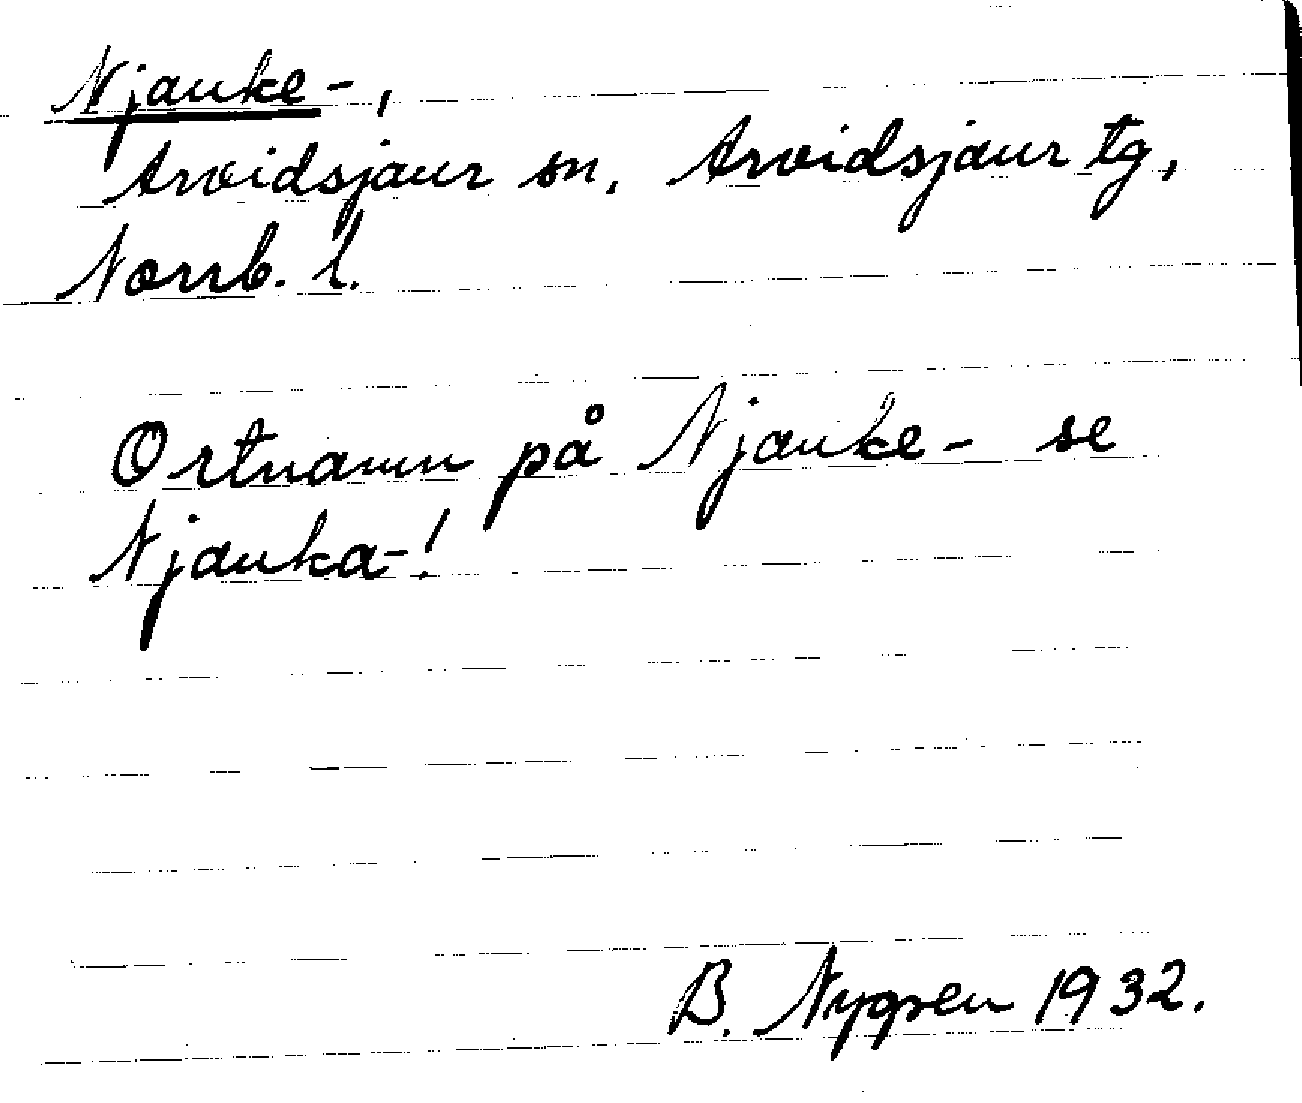 Njauke-,
Arvidsjaur sn, Arvidsjaur tg,
Norrb. l.
Ortnamn på Njauke- se
Njauka-!
B. Nygren 1932.